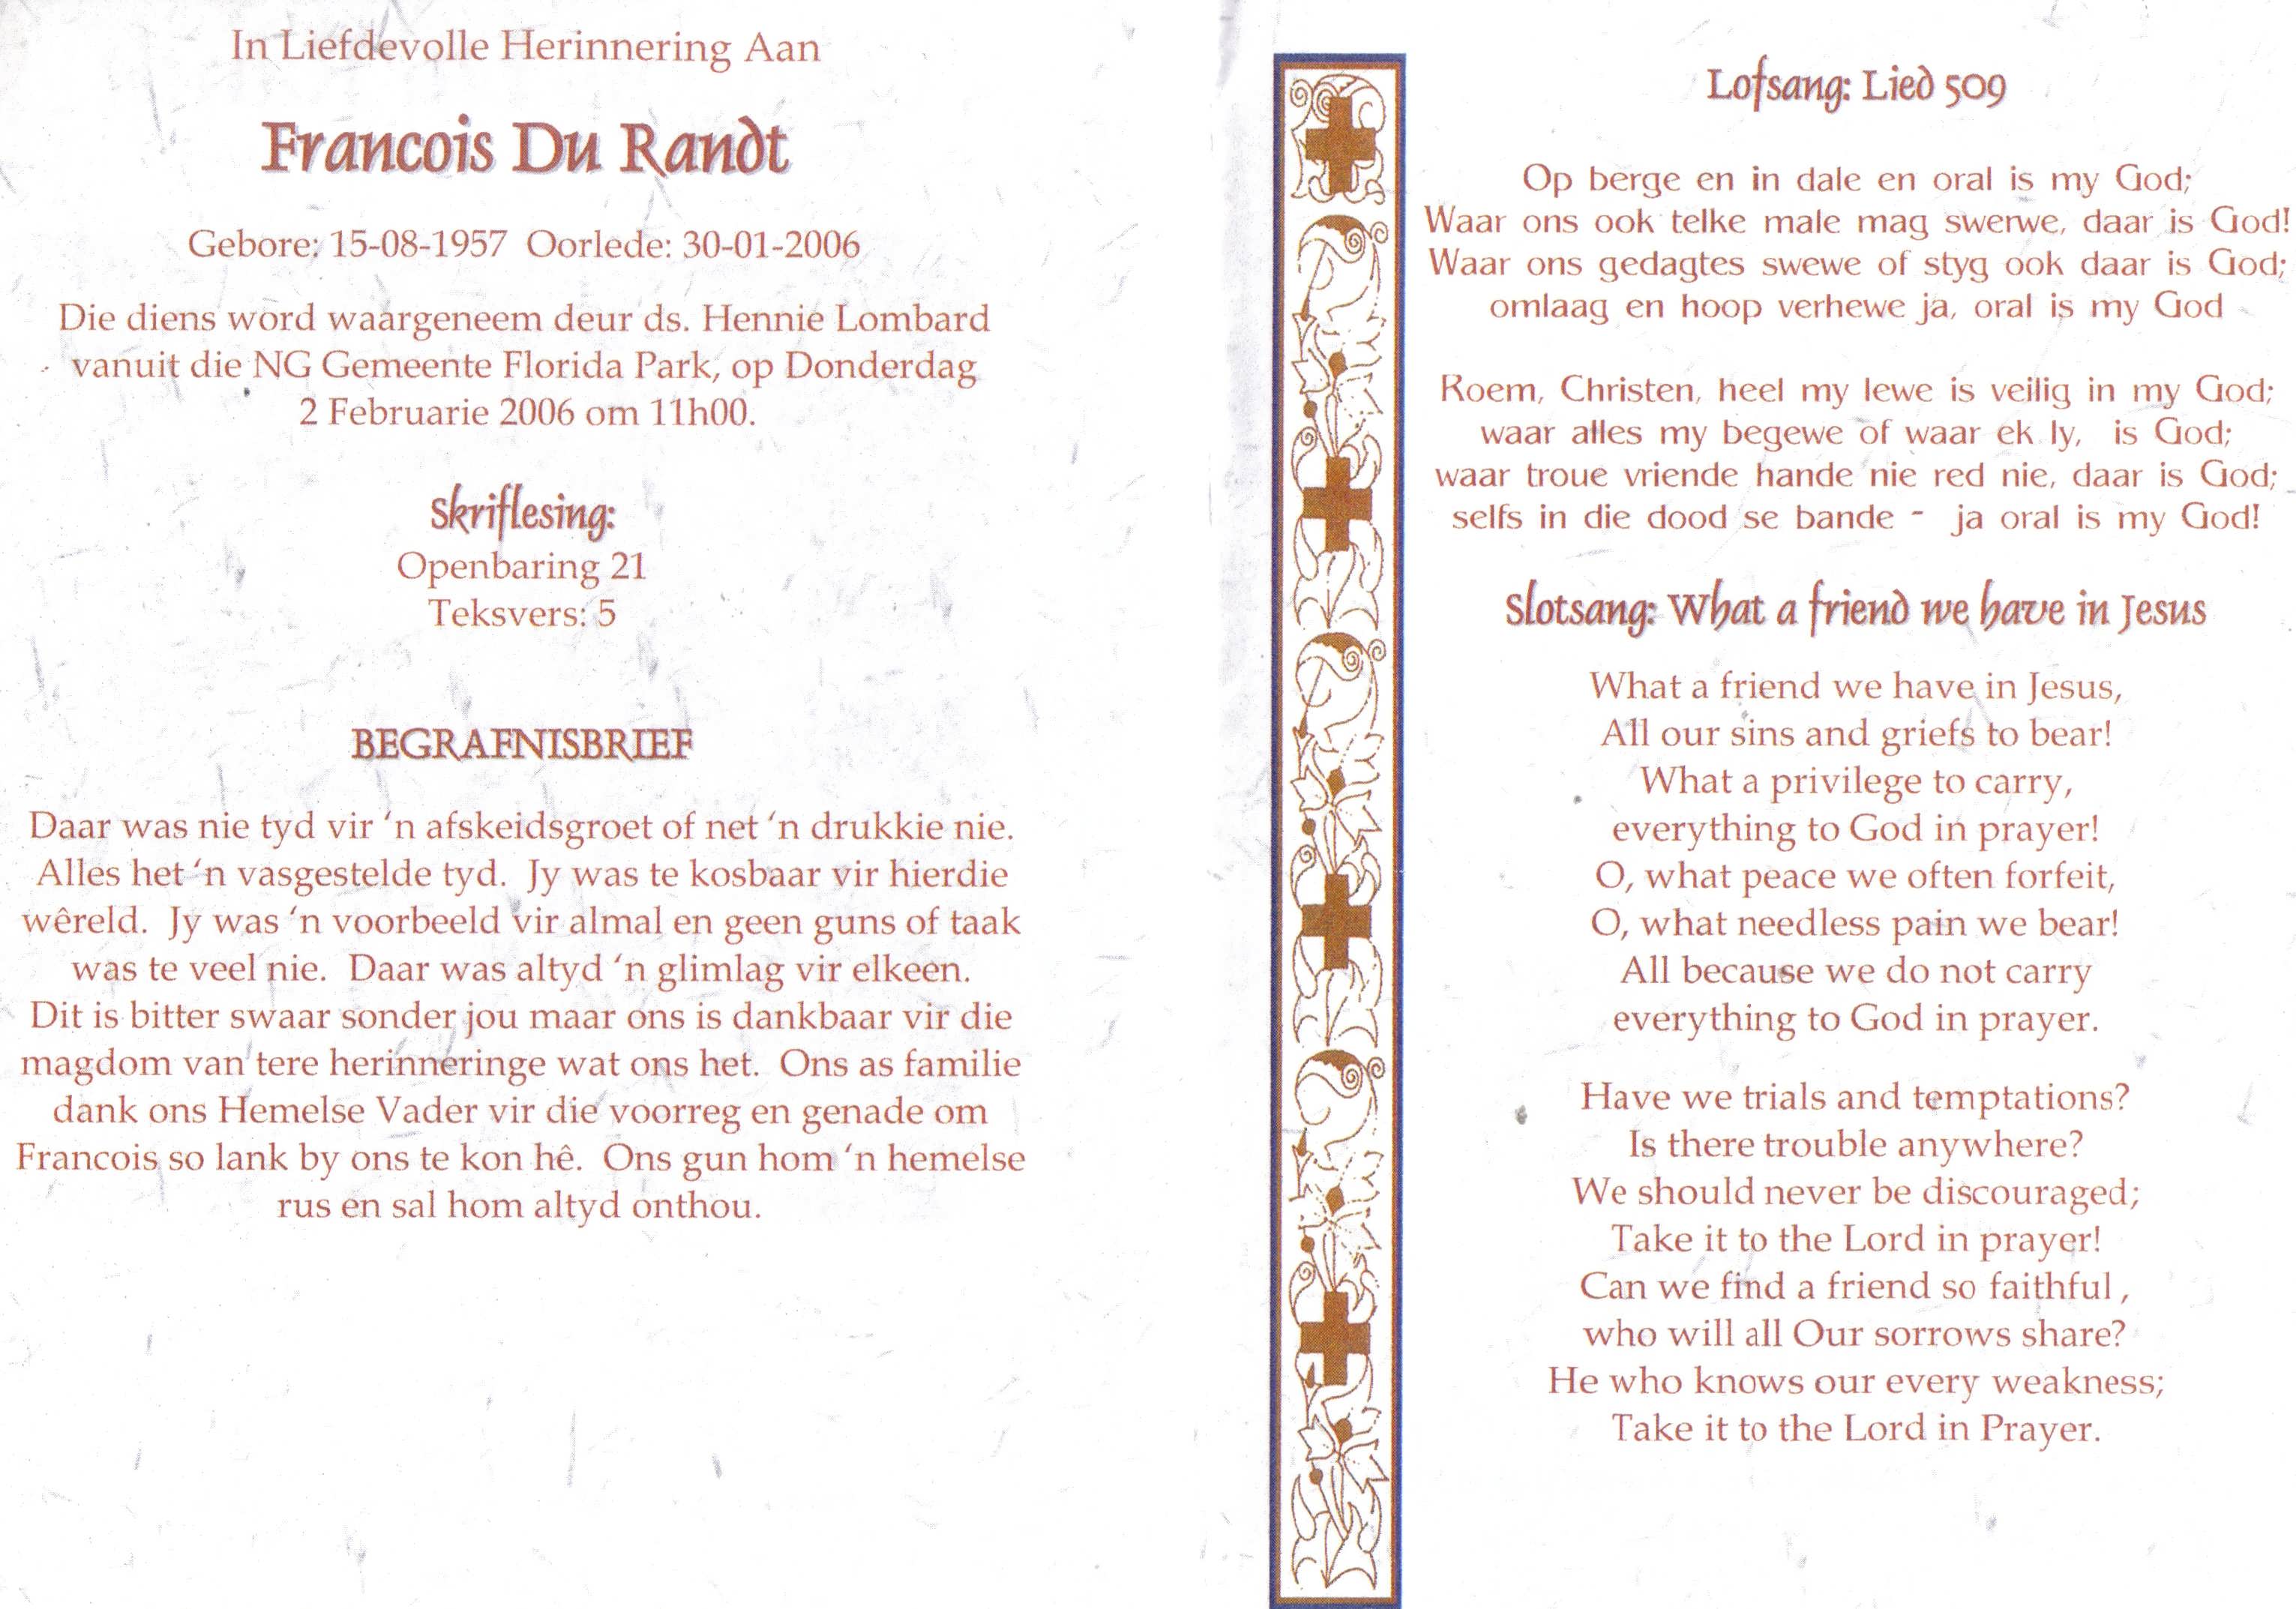 In Liefdevolle Herinnering Aan
Francois Du Randt
Gebore: 15-08-1957 Oorlede: 30-01-2006
Die diens word waargeneem deur ds. Hennie Lombard
vanuit die NG Gemeente Florida Park, op Donderdag
2 Februarie 2006 om 11h00.
Skriflesing:
Openbaring 21
Teksvers: 5
BEGRAFNISBRIEF
Daar was nie tyd vir ‘n afskeidsgroet of net ‘n drukkie nie.
Alles het ‘n vasgestelde tyd. Jy was te kosbaar vir hierdie
wêreld. Jy was ‘n voorbeeld vir almal en geen guns of taak
was te veel nie. Daar was altyd ‘n glimlag vir elkeen.
Dit is bitter swaar sonder jou maar ons is dankbaar vir die
magdom van tere herinneringe wat ons het. Ons as familie
dank ons Hemelse Vader vir die voorreg en genade om
Francois so lank by ons te kon hê. Ons gun hom ‘n hemelse
rus en sal hom altyd onthou.
Lofsang: Lied 509
Op berge en in dale en oral is my God;
Waar ons ook telke male mag swerwe, daar is God!
Waar ons gedagtes swewe of styg ook daar is God;
omlaag en hoop verhewe ja, oral is my God
Roem, Christen, heel my lewe is veilig in my God;
waar alles my begewe of waar ek ly, is God;
waar troue vriende hande nie red nie, daar is God;
selfs in die dood se bande - ja oral is my God!
Slotsang: What a friend we have in Jesus
What a friend we have in Jesus,
All our sins and griefs to bear!
What a privilege to carry,
everything to God in prayer!
O, what peace we often forfeit,
O, what needless pain we bear!
All because we do not carry
everything to God in prayer.
Have we trials and temptations?
Is there trouble anywhere?
We should never be discouraged;
Take it to the Lord in prayer!
Can we find a friend so faithful ,
who will all Our sorrows share?
He who knows our every weakness;
Take it to the Lord in Prayer.